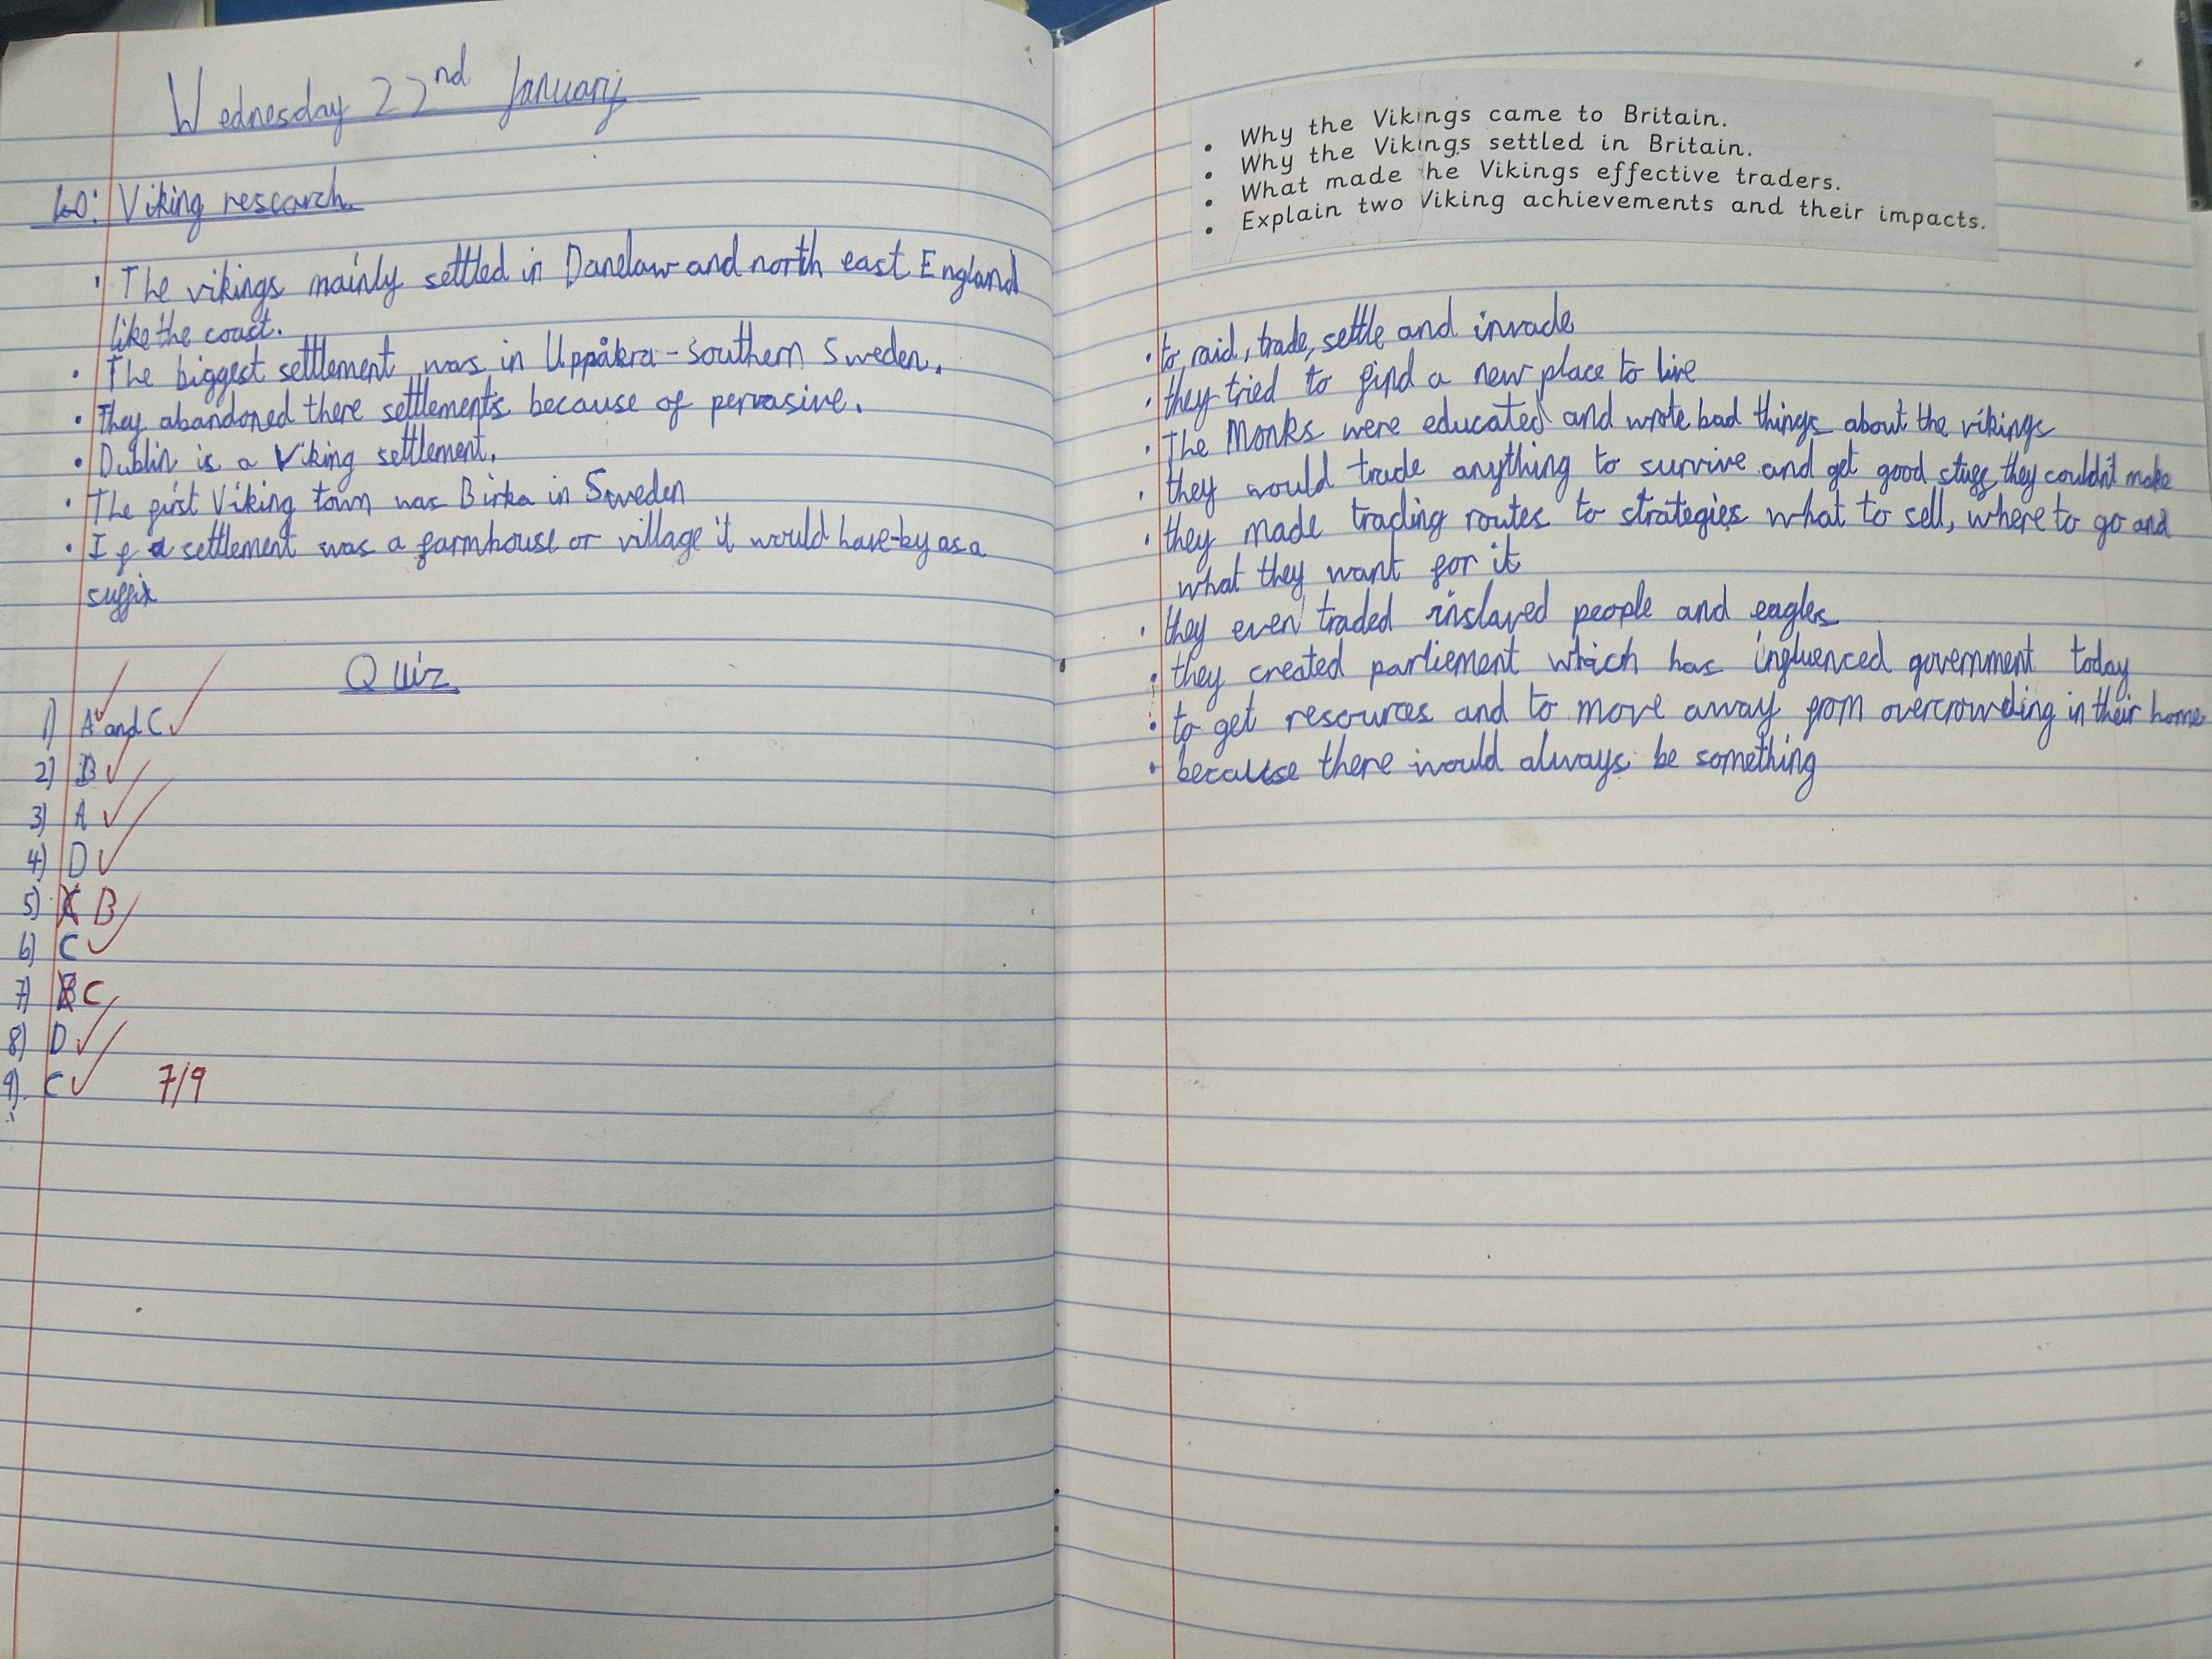 Wednesday 22nd January
LO: Viking research.
• The vikings mainly settled in Danelaw and north east England
like the coast.
• The biggest settlement was in Uppåkra - southern Sweden.
• They abandoned there settlements because of pervasive.
• Dublin is a Viking settlement.
• The first Viking town was Birka in Sweden
• If a settlement was a farmhouse or village it would have -by as a
suffix
Quiz
1) A and C
2) B
3) A
4) D
5) C B
6) C
7) B C
8) D
9) C 7/9
• Why the Vikings came to Britain.
• Why the Vikings settled in Britain.
• What made the Vikings effective traders.
• Explain two Viking achievements and their impacts.
• to raid, trade, settle and invade
• they tried to find a new place to live
• The Monks were educated and wrote bad things about the vikings
• they would trade anything to survive and get good stuff they couldn't make
• they made trading routes to strategies what to sell, where to go and
what they want for it
• they even traded inslaved people and eagles
• they created parliement which has influenced government today
• to get resources and to move away from overcrowding in their home
• because there would always be something